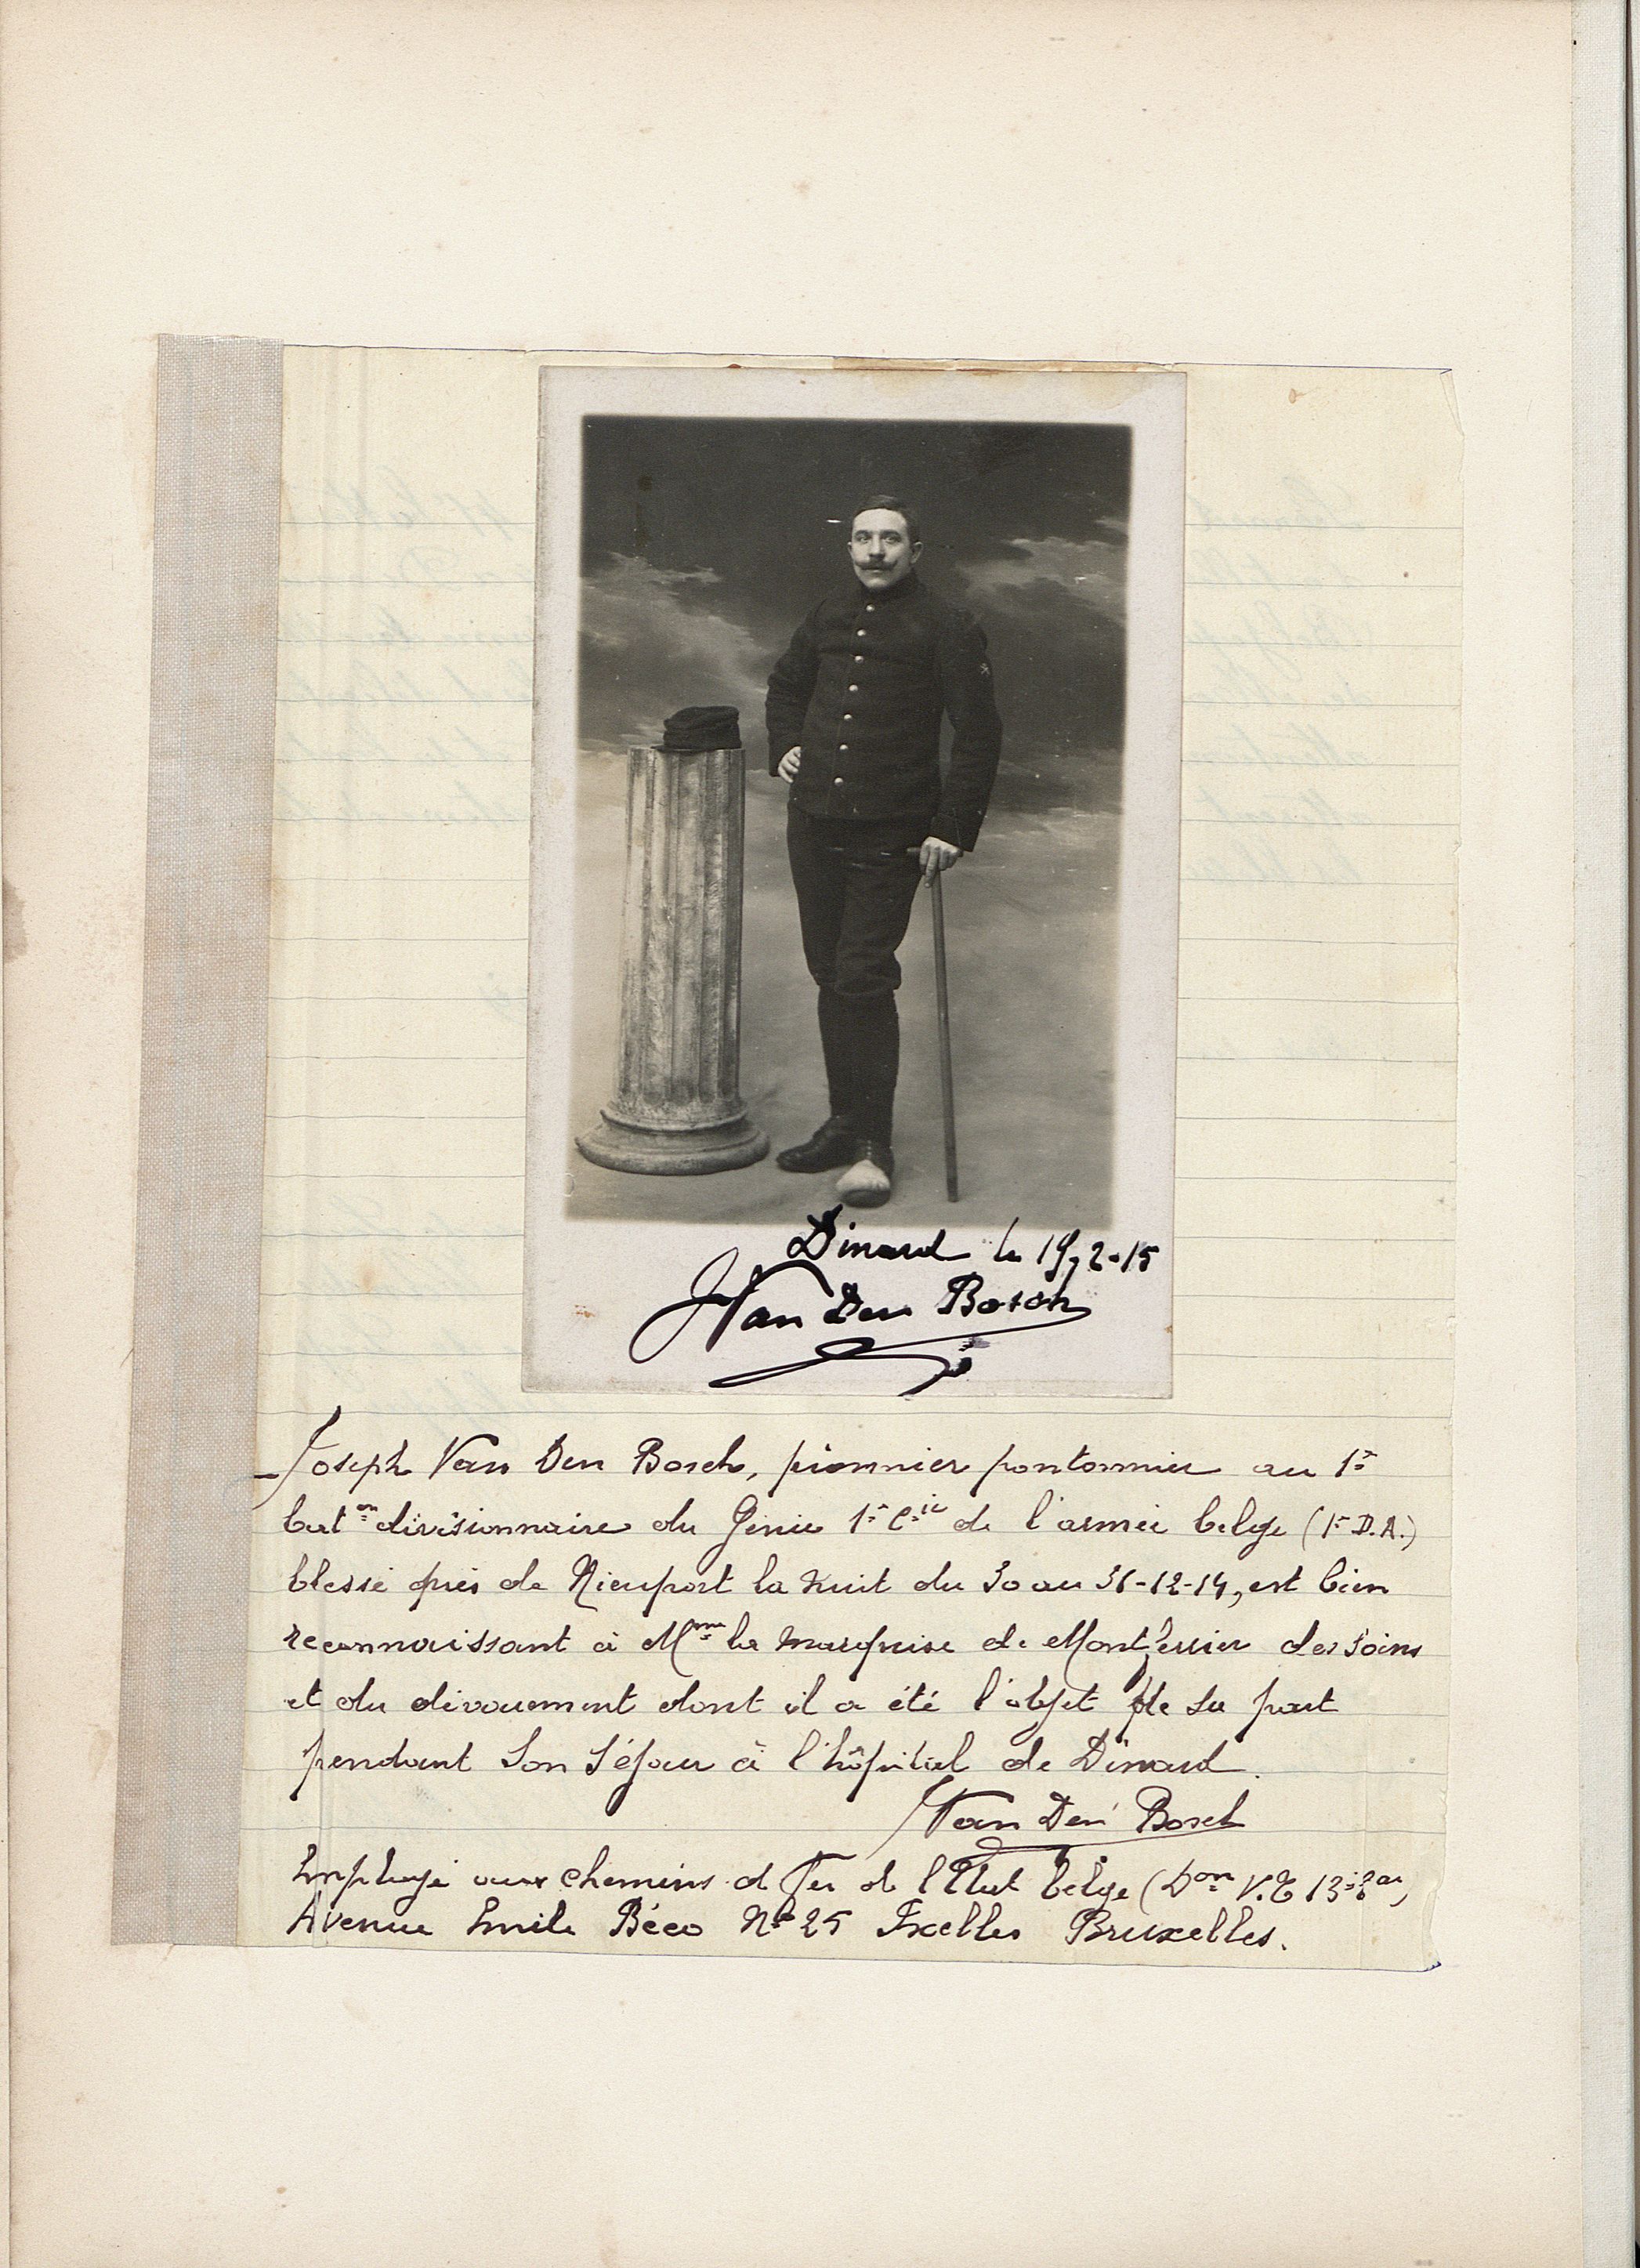 Dinard le 19-2-15
J Van Den Bosch
Joseph Van Den Bosch, pionnier pontonnier au 1er
baton divisionnaire du Génie 1re Cie de l'armée belge (1re D.A.)
blessé près de Nieuport la nuit du 30 au 31-12-14, est bien
reconnaissant à Mme la marquise de Montferrier des soins
et du dévouement dont il a été l'objet de sa part
pendant son séjour à l'hôpital de Dinard.
J Van Den Bosch
Employé aux chemins d fer de l'Etat belge (Don V.T 13
Avenue Emile Béco No 25 Ixelles Bruxelles.